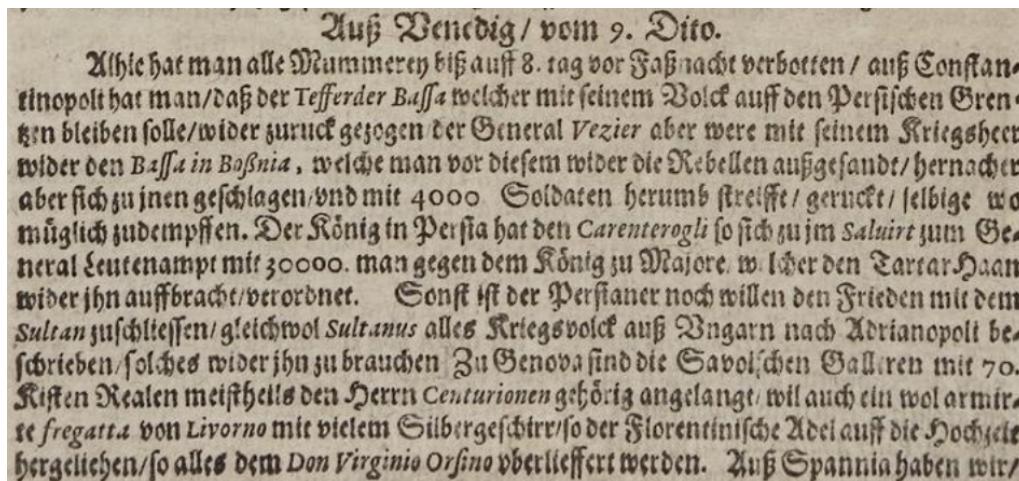 Auß Venedig / vom 9. Dito.
Alhie hat man alle Mummerey biß auff 8. tag vor Faßnacht verbotten / auß Constan-
tinopoli hat man / daß der Tefferder Bassa welcher mit seinem Volck auff den Persischen Gren-
tzen bleiben solle / wider zuruck gezogen der General Vezier aber were mit seinem Kriegsheer
wider den Bassa in Boßnia, welche man vor diesem wider die Rebellen außgesandt / hernacher
aber sich zu jnen geschlagen / vnd mit 4000 Soldaten herumb streiffe / geruckt / selbige wo
müglich zudempffen. Der König in Persia hat den Carenterogli so sich zu jm Saluirt zum Ge-
neral Leutenampt mit 30000. man gegen dem König zu Majore w lcher den Tartar Haan
wider jhn auffbracht / verordnet. Sonst ist der Persianer noch willen den Frieden mit dem
Sultan zuschliessen / gleichwol Sultanus alles Kriegsvolck auß Vngarn nach Adrianopoli be-
schrieben / solches wider jhn zu brauchen Zu Genova sind die Savoischen Galleren mit 70.
Kisten Realen meistheils den Herrn Centurionen gehörig angelangt / wil auch ein wol armir-
te fregatta von Livorno mit vielem Silbergeschirr / so der Florentinische Adel auff die Hochzeit
hergeliehen / so alles dem Don Virginio Orsino vberlieffert werden. Auß Spannia haben wir /